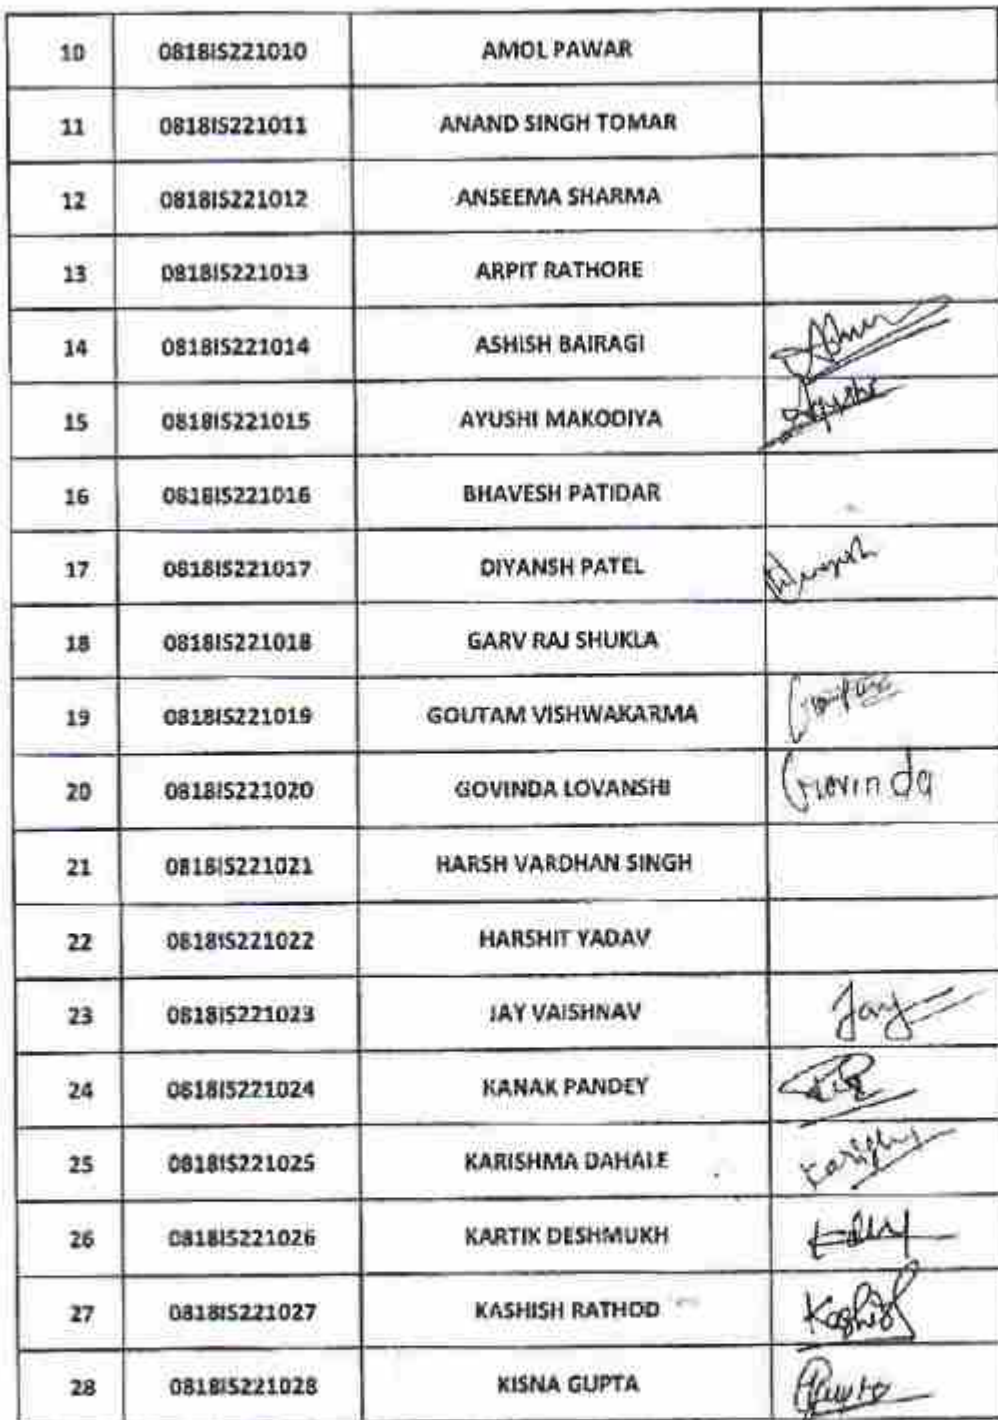 10 0818IS221010 AMOL PAWAR
11 0818IS221011 ANAND SINGH TOMAR
12 0818IS221012 ANSEEMA SHARMA
13 0818IS221013 ARPIT RATHORE
14 0818IS221014 ASHISH BAIRAGI
15 0818IS221015 AYUSHI MAKODIYA
16 0818IS221016 BHAVESH PATIDAR
17 0818IS221017 DIYANSH PATEL
18 0818IS221018 GARV RAJ SHUKLA
19 0818IS221019 GOUTAM VISHWAKARMA
20 0818IS221020 GOVINDA LOVANSHI Govinda
21 0818IS221021 HARSH VARDHAN SINGH
22 0818IS221022 HARSHIT YADAV
23 0818IS221023 JAY VAISHNAV Jay
24 0818IS221024 KANAK PANDEY
25 0818IS221025 KARISHMA DAHALE
26 0818IS221026 KARTIK DESHMUKH
27 0818IS221027 KASHISH RATHOD Kashish
28 0818IS221028 KISNA GUPTA